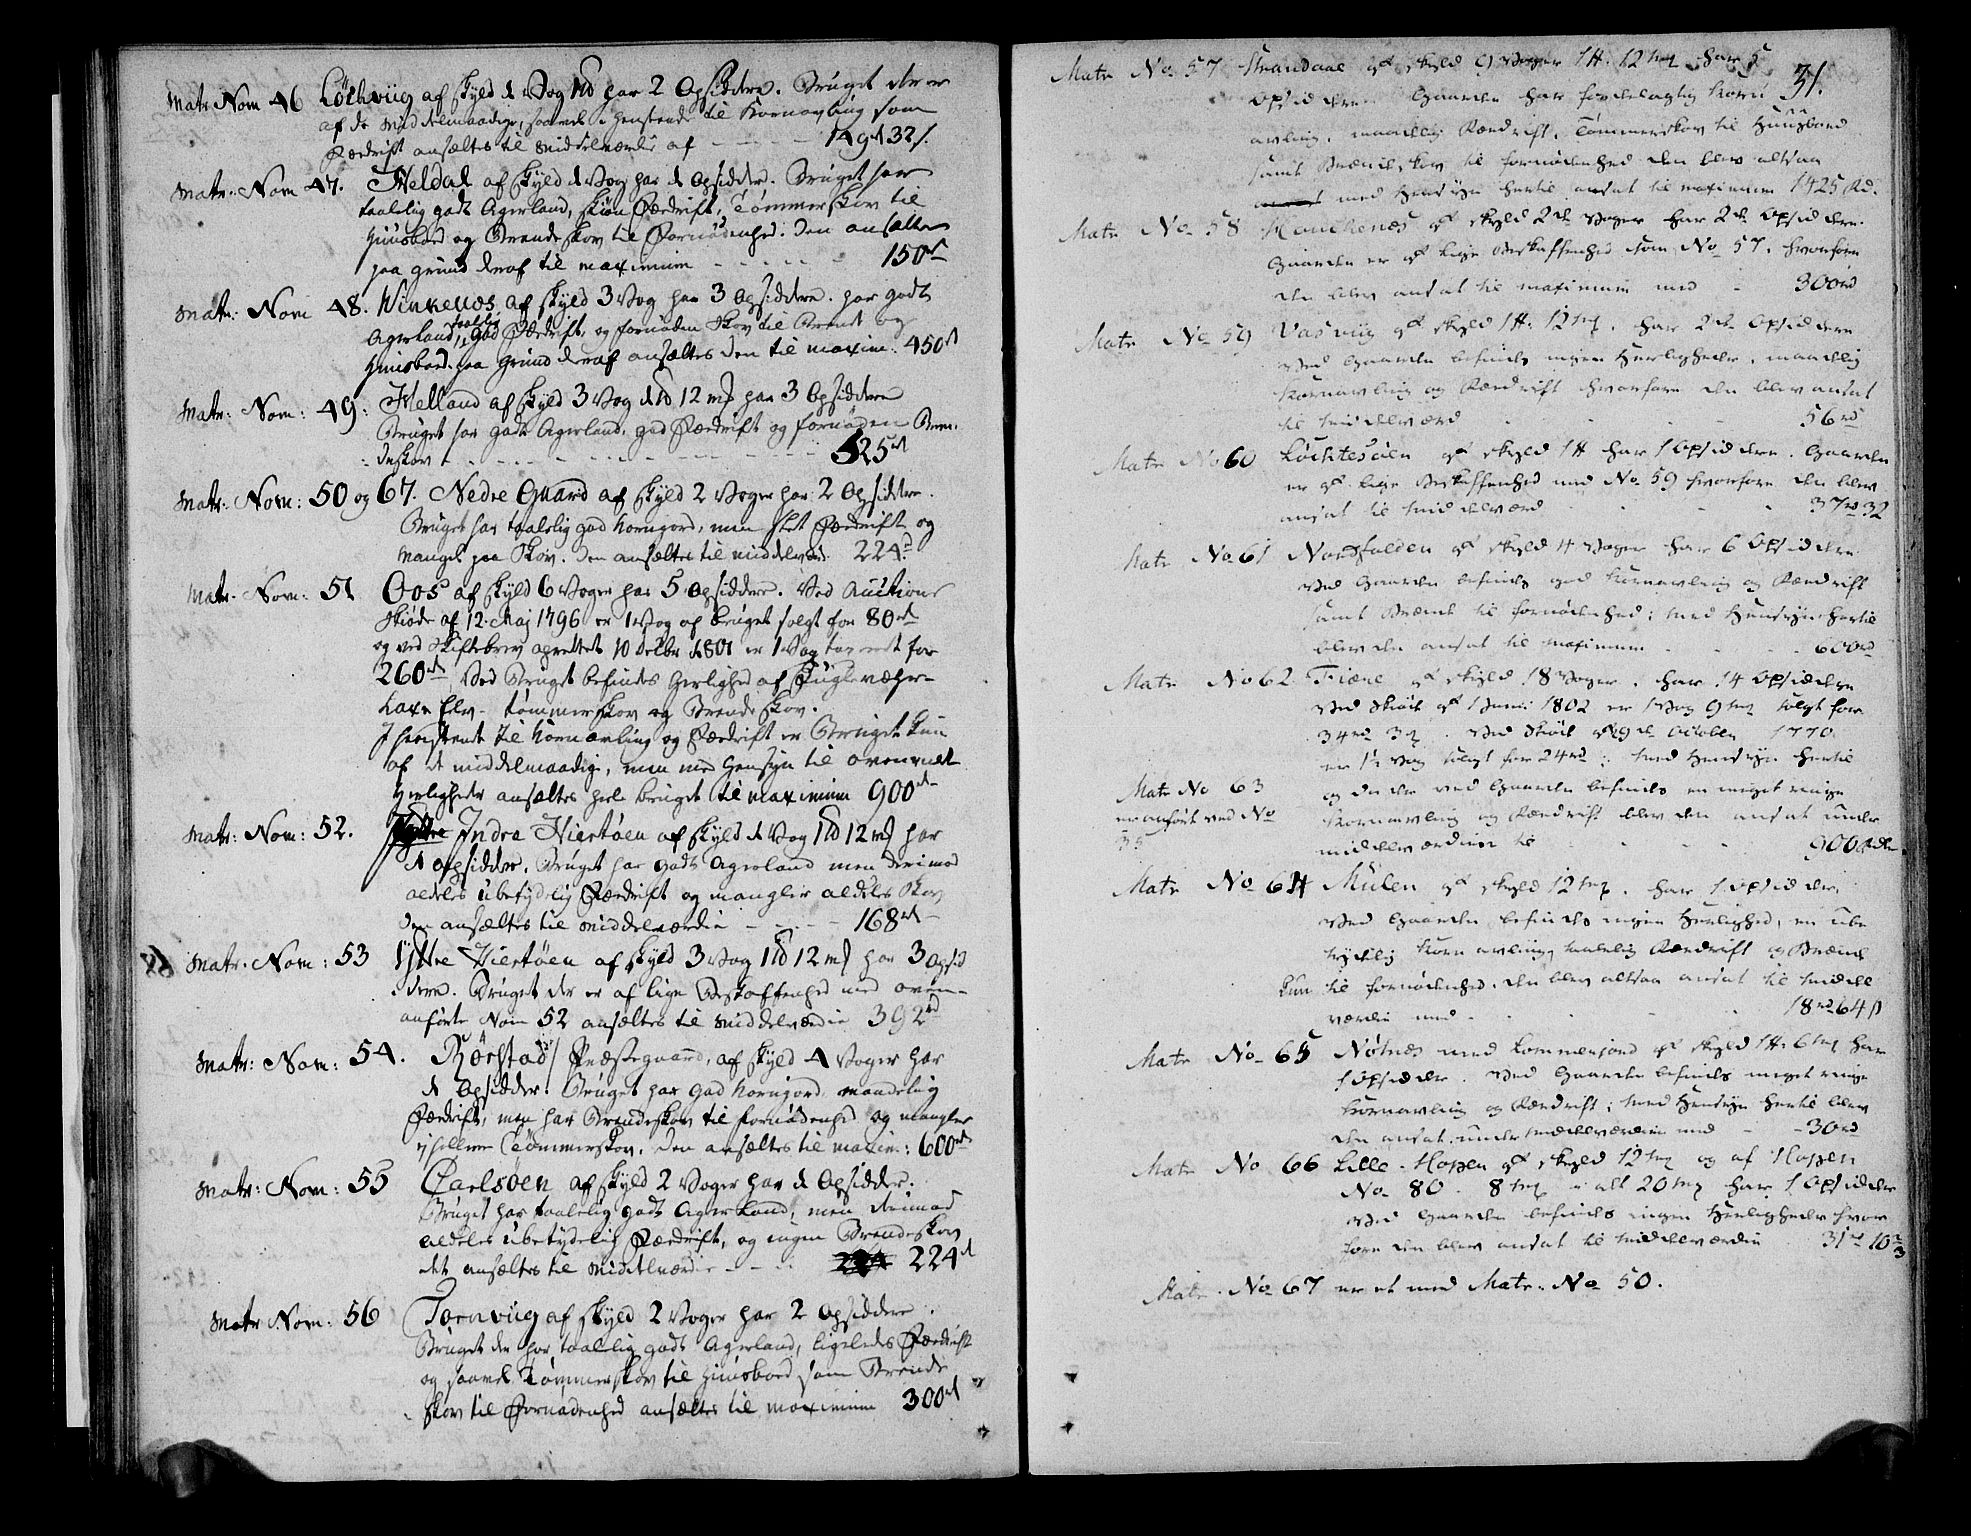 Matr Nom 46 Löchviig af Skyld 1 Vog 1 ℔ har 2 Opsiddere. Bruget der er
af de middelmaadige, saavel i henseende til Kornavling som
Fædrift ansættes til Middelværdie af - - - 149 rd 32 s.
Matr: Nom 47. Heldal af Skyld 1 Vog har 1 Opsidder. Bruget har
taalelig godt Agerland, skiøn Fædrift, Tømmerskov til
Huusboed og Brendeskov til Fornødenhed. Den ansættes
paa grund deraf til maximum - - - - 150 rd
Matr: Nom 48. Vinkenes af Skyld 3 Vog har 3 Opsiddere. har godt
Agerland, taalelig god Fædrift, og fornøden Skov til Brendt og
Huusboed. paa Grund deraf ansættes den til maxim: 450 rd
Matr: Nom: 49: Helland af Skyld 3 Vog 1 ℔ 12 mk har 3 Opsiddere
Bruget har godt Agerland, god Fædrift og fornøden Bren-
deskov - - - - - - - 525 rd
Matr: Nom: 50 og 67. Nedre Gaard af Skyld 2 Voger har 2 Opsiddere.
Bruget har taalelig god Kornjord, men slet Fædrift og
Mangel paa Skov. Den ansættes til middelværd. 224 rd
Matr. Nom: 51 Oos af Skyld 6 Voger har 5 Opsiddere. Ved Auctions
Skiøde af 12. Maj 1796 er 1 Vog af bruget solgt for 80 rd
og ved Skiftebrev oprettet 10 Octbr 1801 er 1 Vog taxeret for
260 rd Ved Bruget befindes Herlighed af Fuglevæhr-
Laxe Elv- Tømmerskov og Brendeskov.
I henseende til Kornavling og Fædrift er Bruget kun
af de middelmaadige, men med Hensyn til ovenmeldte
Herligheder ansættes hele bruget til maximum 900 rd
Matr: Nom: 52. Indre Hiertøen af Skyld 1 Vog 1 ℔ 12 mk har
1 opsidder. Bruget har godt Agerland men derimod
aldeles ubetydelig Fædrift og mangler aldeles Skov
Den ansættes til Middelværdie - - - 168 rd
Matr. Nom: 53 Yttre Hiertøen af Skyld 3 Vog 1 ℔ 12 mk har 3 Opsid
dere. Bruget der er af lige Beskaffenhed med oven-
anførte Nom 52 ansættes til Middelværdie 392 rd
Matr: Nom: 54. Rörstad/ Præstegaard, af Skyld 4 Voger har
1 Opsidder. Bruget har god Kornjord maadelig
Fædrift, men har Brendeskov til Fornødenhed og mangler
Tømmerskov. Den ansættes til maxim: 600 rd
Matr: Nom: 55 Carlsöen af Skyld 2 Voger har 1 Opsidder.
Bruget har taalelig godt Agerland, men derimod
aldeles ubetydelig Fædrift, og ingen Brendeskov
det ansættes til Middelværdie - - - 224 rd
Matr Nom: 56 Tornviig af Skyld 2 Voger har 2 Opsiddere.
Bruget der har taalelig godt Agerland, ligeledes Fædrift
og saavel Tømmerskov til Huusboed som Brende
skov til Fornødenhed ansættes til maximum 300 rd
31.
Matr No 57 Strandaae af skyld 9 Voger 1 ℔. 12 mk har 5
Opsiddere Gaarden har fordelagtig Korn
avling, maadelig Fædrift, Tømmerskov til Huusboed
samt Brændeskov til fornødenhed den blev altsaa
med Hensyn hertil ansat til maximum 1425 Rd.
Matr No 58 af skyld 2de Voger har 2de Opsiddere
Gaarden er af lige Beskaffenhed som No 57. hvorfore
den blev ansat til maximum med - 300 rd
Matr No 59 Vasviig af skyld 1 ℔. 12 mk. har 2de Opsiddere
Ved Gaarden befindes ingen Herligheder, maadelig
Kornavling og Fædrift hvorfore den blev ansat
til Middelværd 56 rd
Matr No 60 Löchtesöen af skyld 1 ℔ har 1 Opsiddere. Gaarden
er af lige Beskaffenhed med No 59 hvorfore den blev
ansat til Middelværd 37 rd 32
Matr No 61 Nordfolden af skyld 4 Voger har 6 Opsiddere
Ved Gaarden befindes god Kornavling og Fædrift
samt Brænde til fornødenhed; med Hensyn hertil
blev den ansat til maximum 600 rd
Matr No 62 Fiære af skyld 18 Voger. har 14 Opsiddere
Ved Skiöde af 1802 er 1 Vog 9 mk solgt for
34 rd 3 . Ved Skiöde af 29de October 1770
er 1½ Vog solgt for 24 rd; med Hensyn hertil
og da der ved Gaarden befindes en meget ringe
Kornavling og Fædrift blev den ansat under
middelværdien til 900 rdlr
Matr No 63
er anført ved No
35
Matr No 64 Mulen af skyld 12 mk. har 1 Opsidder
Ved Gaarden befindes ingen Herlighed, en ube
tydelig Kornavling, taalelig Fædrift og Brænde
kun til fornødenhed. den blev altsaa ansat til Middel
værdie med - 18 rd 64 s
Matr No 65 Nötnæs med af skyld 1 ℔. 6 mk har
1 Opsidder. Ved Gaarden befindes meget ringe
Kornavling og Fædrift; med Hensyn hertil blev
den ansat under Middelværdien med - 30 rd
Matr No 66 Lille-Hopen af skyld 12 mk og af Hopen
No 80. 8 mk i alt 20 mk har 1 Opsidder
Ved Gaarden befindes ingen Herligheder hvor
fore den blev ansat til Middelværdien 31 rd 10 2/3
Matr. No 67 er et med Matr. No 50.